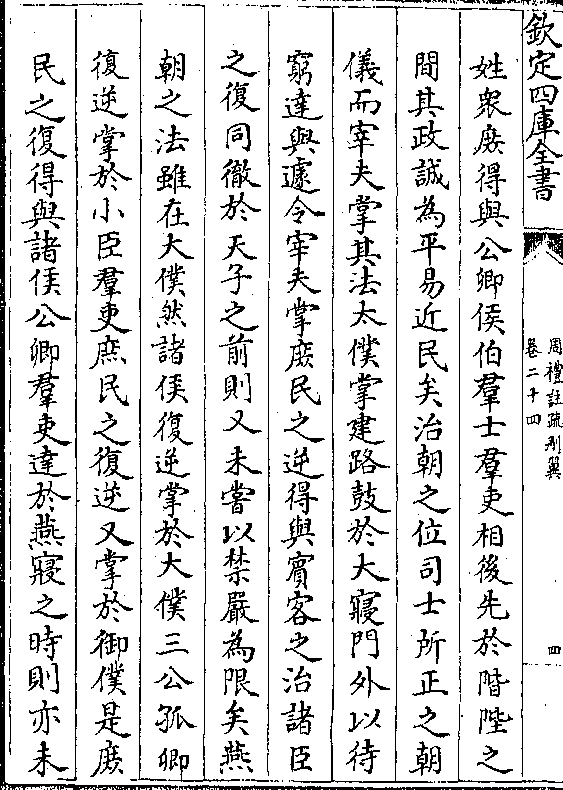 欽定四庫全書
周禮註疏刪翼
卷二十四
四
姓衆庶得與公卿侯伯羣士羣吏相後先於階陛之
間其政誠為平易近民矣治朝之位司士所正之朝
儀而宰夫掌其法太僕掌建路鼓於大寢門外以待
窮達與遽令宰夫掌庶民之逆得與賓客之治諸臣
之復同徹於天子之前則又未嘗以禁嚴為限矣燕
朝之法雖在大僕然諸侯復逆掌於大僕三公孤卿
復逆掌於小臣羣吏庶民之復逆又掌於御僕是庶
民之復得與諸侯公卿羣吏達於燕寢之時則亦未